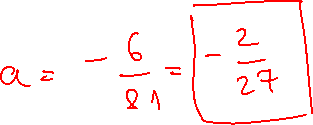 a = - 6/81 = - 2/27